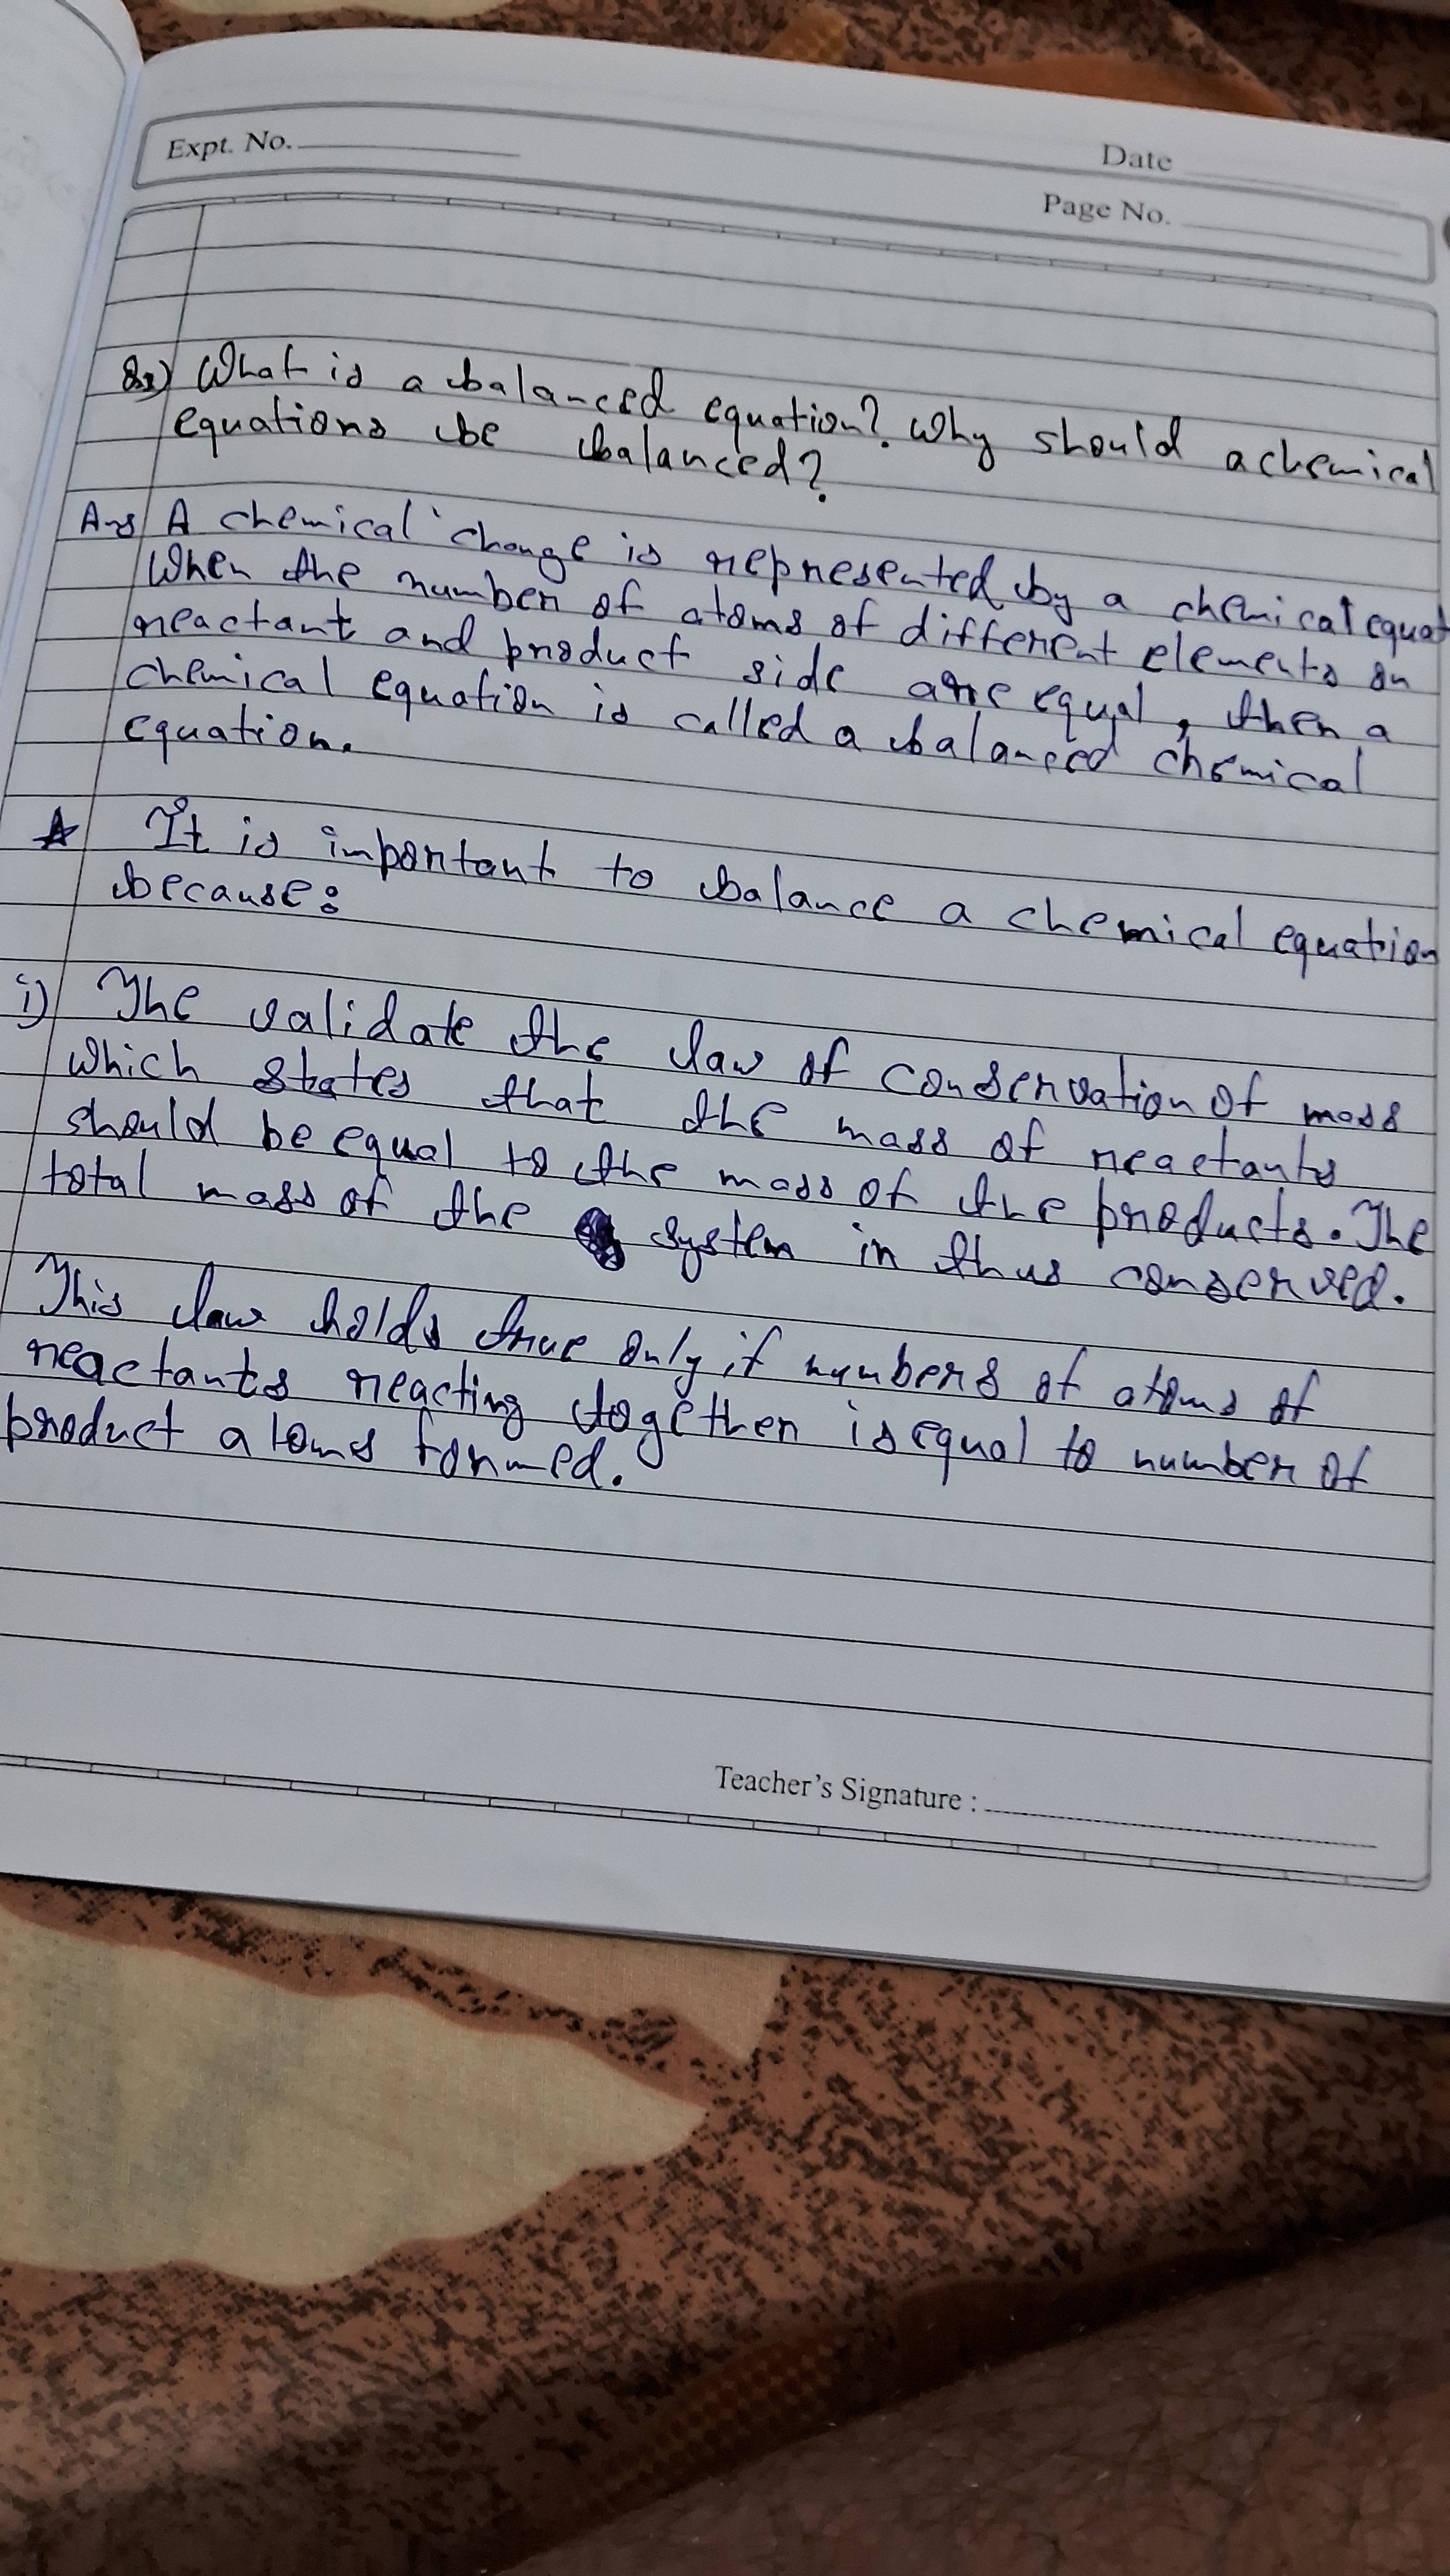 Expt. No.
Date
Page No.
What is a balanced equation? Why should a chemical
equations be balanced?
Ans A chemical change is represented by a chemical equat
When the number of atoms of different elements on
reactant and product side are equal, then a
chemical equation is called a balanced chemical
equation.
It is important to balance a chemical equation
because:
i) The validate the law of conservation of mass
which states that the mass of reactants
should be equal to the mass of the products. The
total mass of the system in thus conserved.
This law holds true only if numbers of atoms of
reactants reacting together is equal to number of
product atoms formed.
Teacher's Signature :